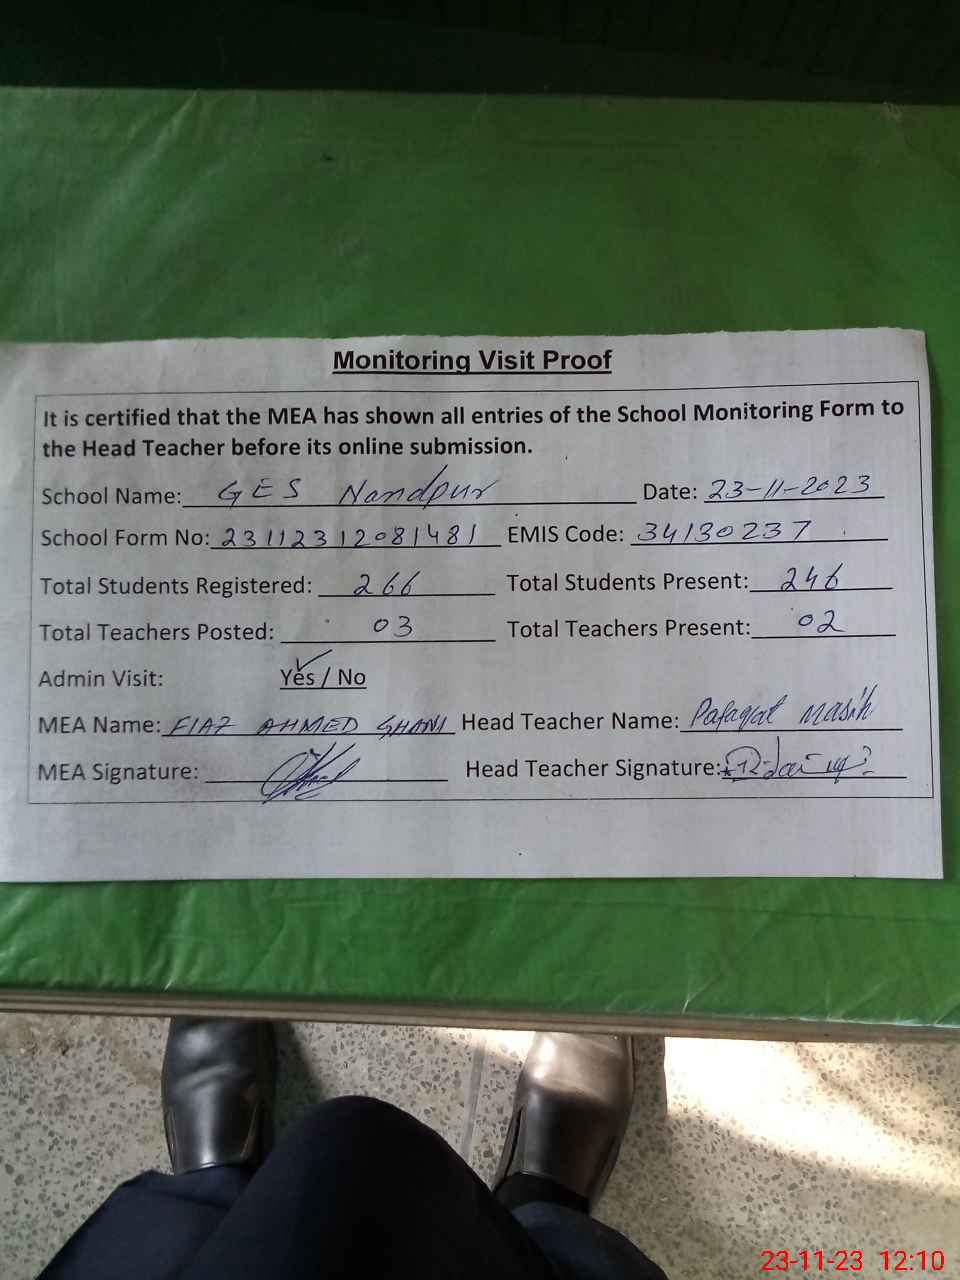 Monitoring Visit Proof
It is certified that the MEA has shown all entries of the School Monitoring Form to
the Head Teacher before its online submission.
School Name: GES Nandpur Date: 23-11-2023
School Form No: 23112312081481 EMIS Code: 34130237
Total Students Registered: 266 Total Students Present: 246
Total Teachers Posted: 03 Total Teachers Present: 02
Admin Visit: Yes / No
MEA Name: FIAZ AHMED GHANI Head Teacher Name: Masih
MEA Signature: Head Teacher Signature:
23-11-23 12:10